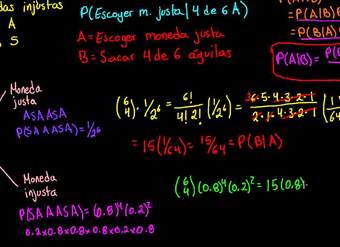 das injustas
A
S
P(Escoger m. justa | 4 de 6 A)
A = Escoger moneda justa
B = Sacar 4 de 6 águilas
= P(A|B)
= P(B|A)
P(A|B) =
Moneda justa
ASAASA
P(SAAASA) = 1/2⁶
(6 4) · 1/2⁶ = 6!/4!2! (1/2⁶) = 6·5·4·3·2·1/2·1·4·3·2·1 (1/64
= 15(1/64) = 15/64 = P(B|A)
Moneda injusta
P(SAAASA) = (0.8)⁴(0.2)²
0.2x0.8x0.8x0.8x0.2x0.8
(6 4)(0.8)⁴(0.2)² = 15(0.8)